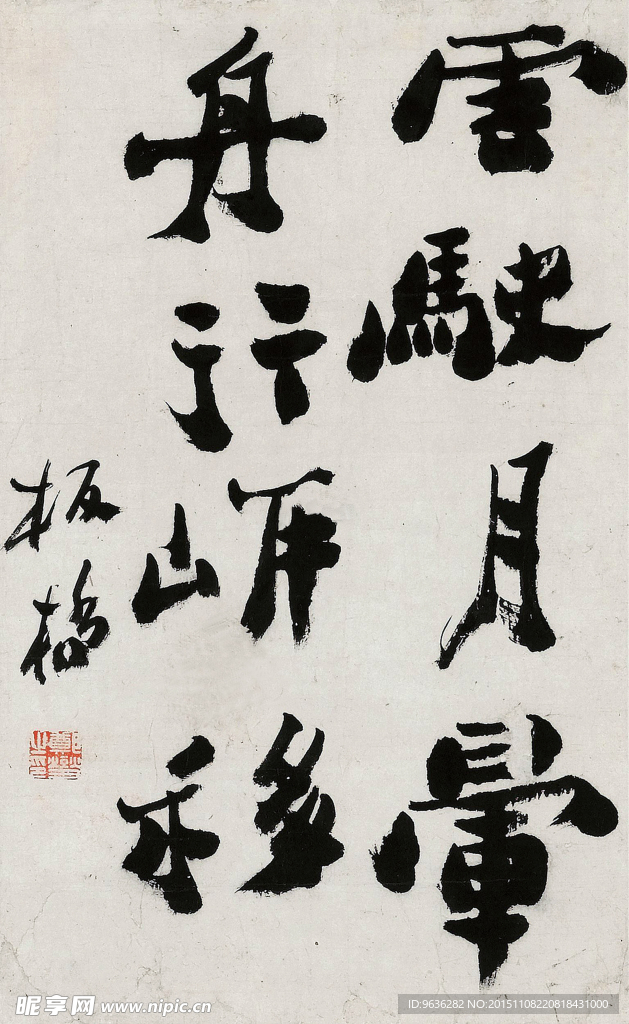 雲駛月暈
舟行岸移
板橋
鄭燮之印
昵享网 www.nipic.cn
ID:9636282 NO:20151108220818431000